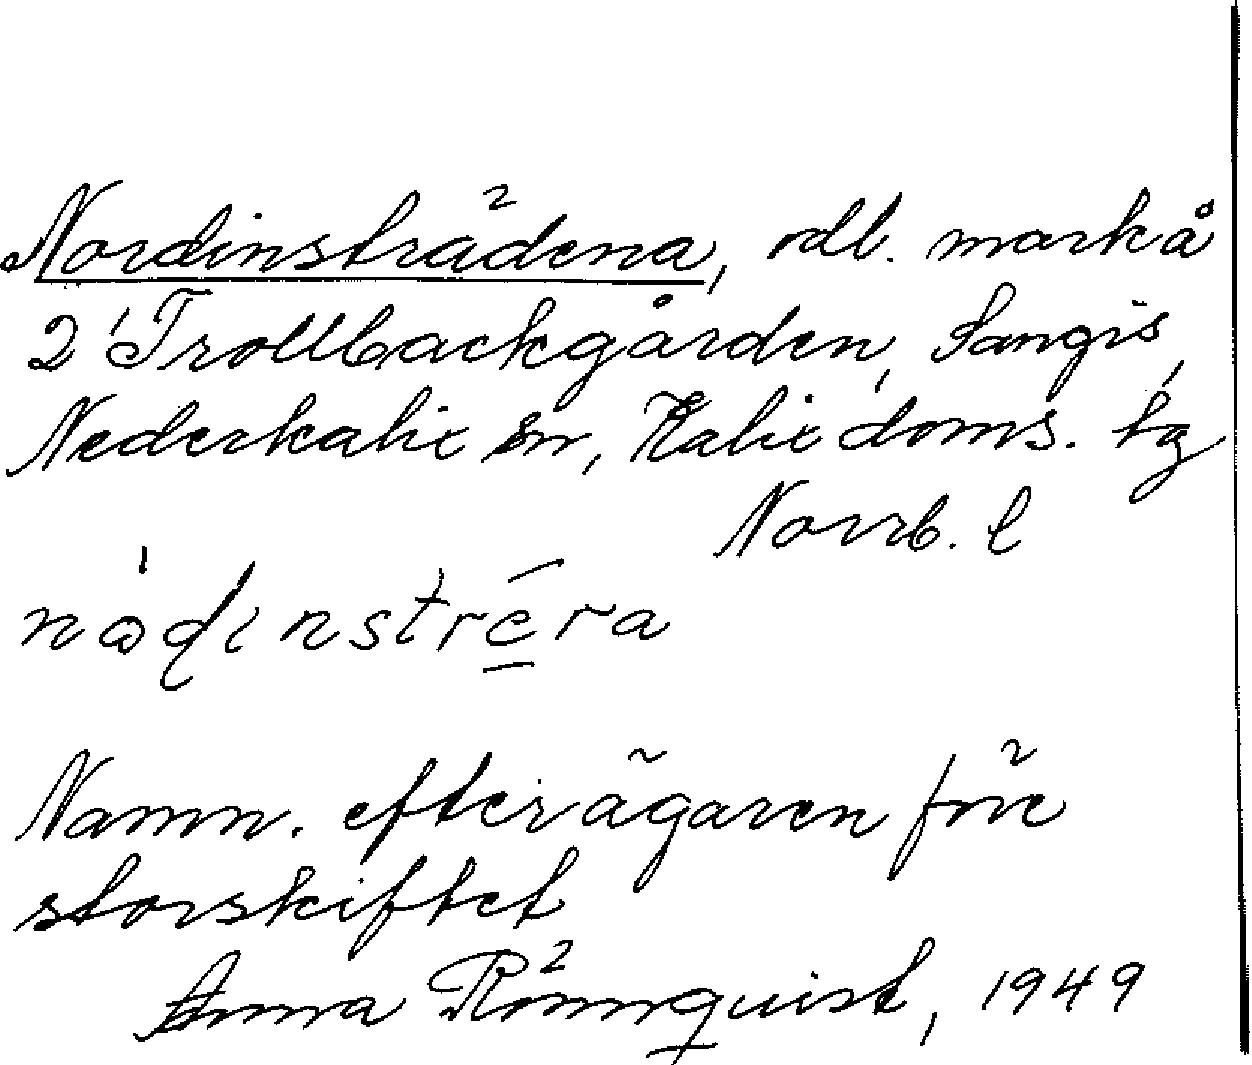 Nordinsträdena, odl. mark å
2 Trollbackgården, Sangis,
Nederkalix sn, Kalix doms. tg
Norrb. l
nòdinstréra
Namn. efter ägaren före
storskiftet
Anna Rönnquist, 1949